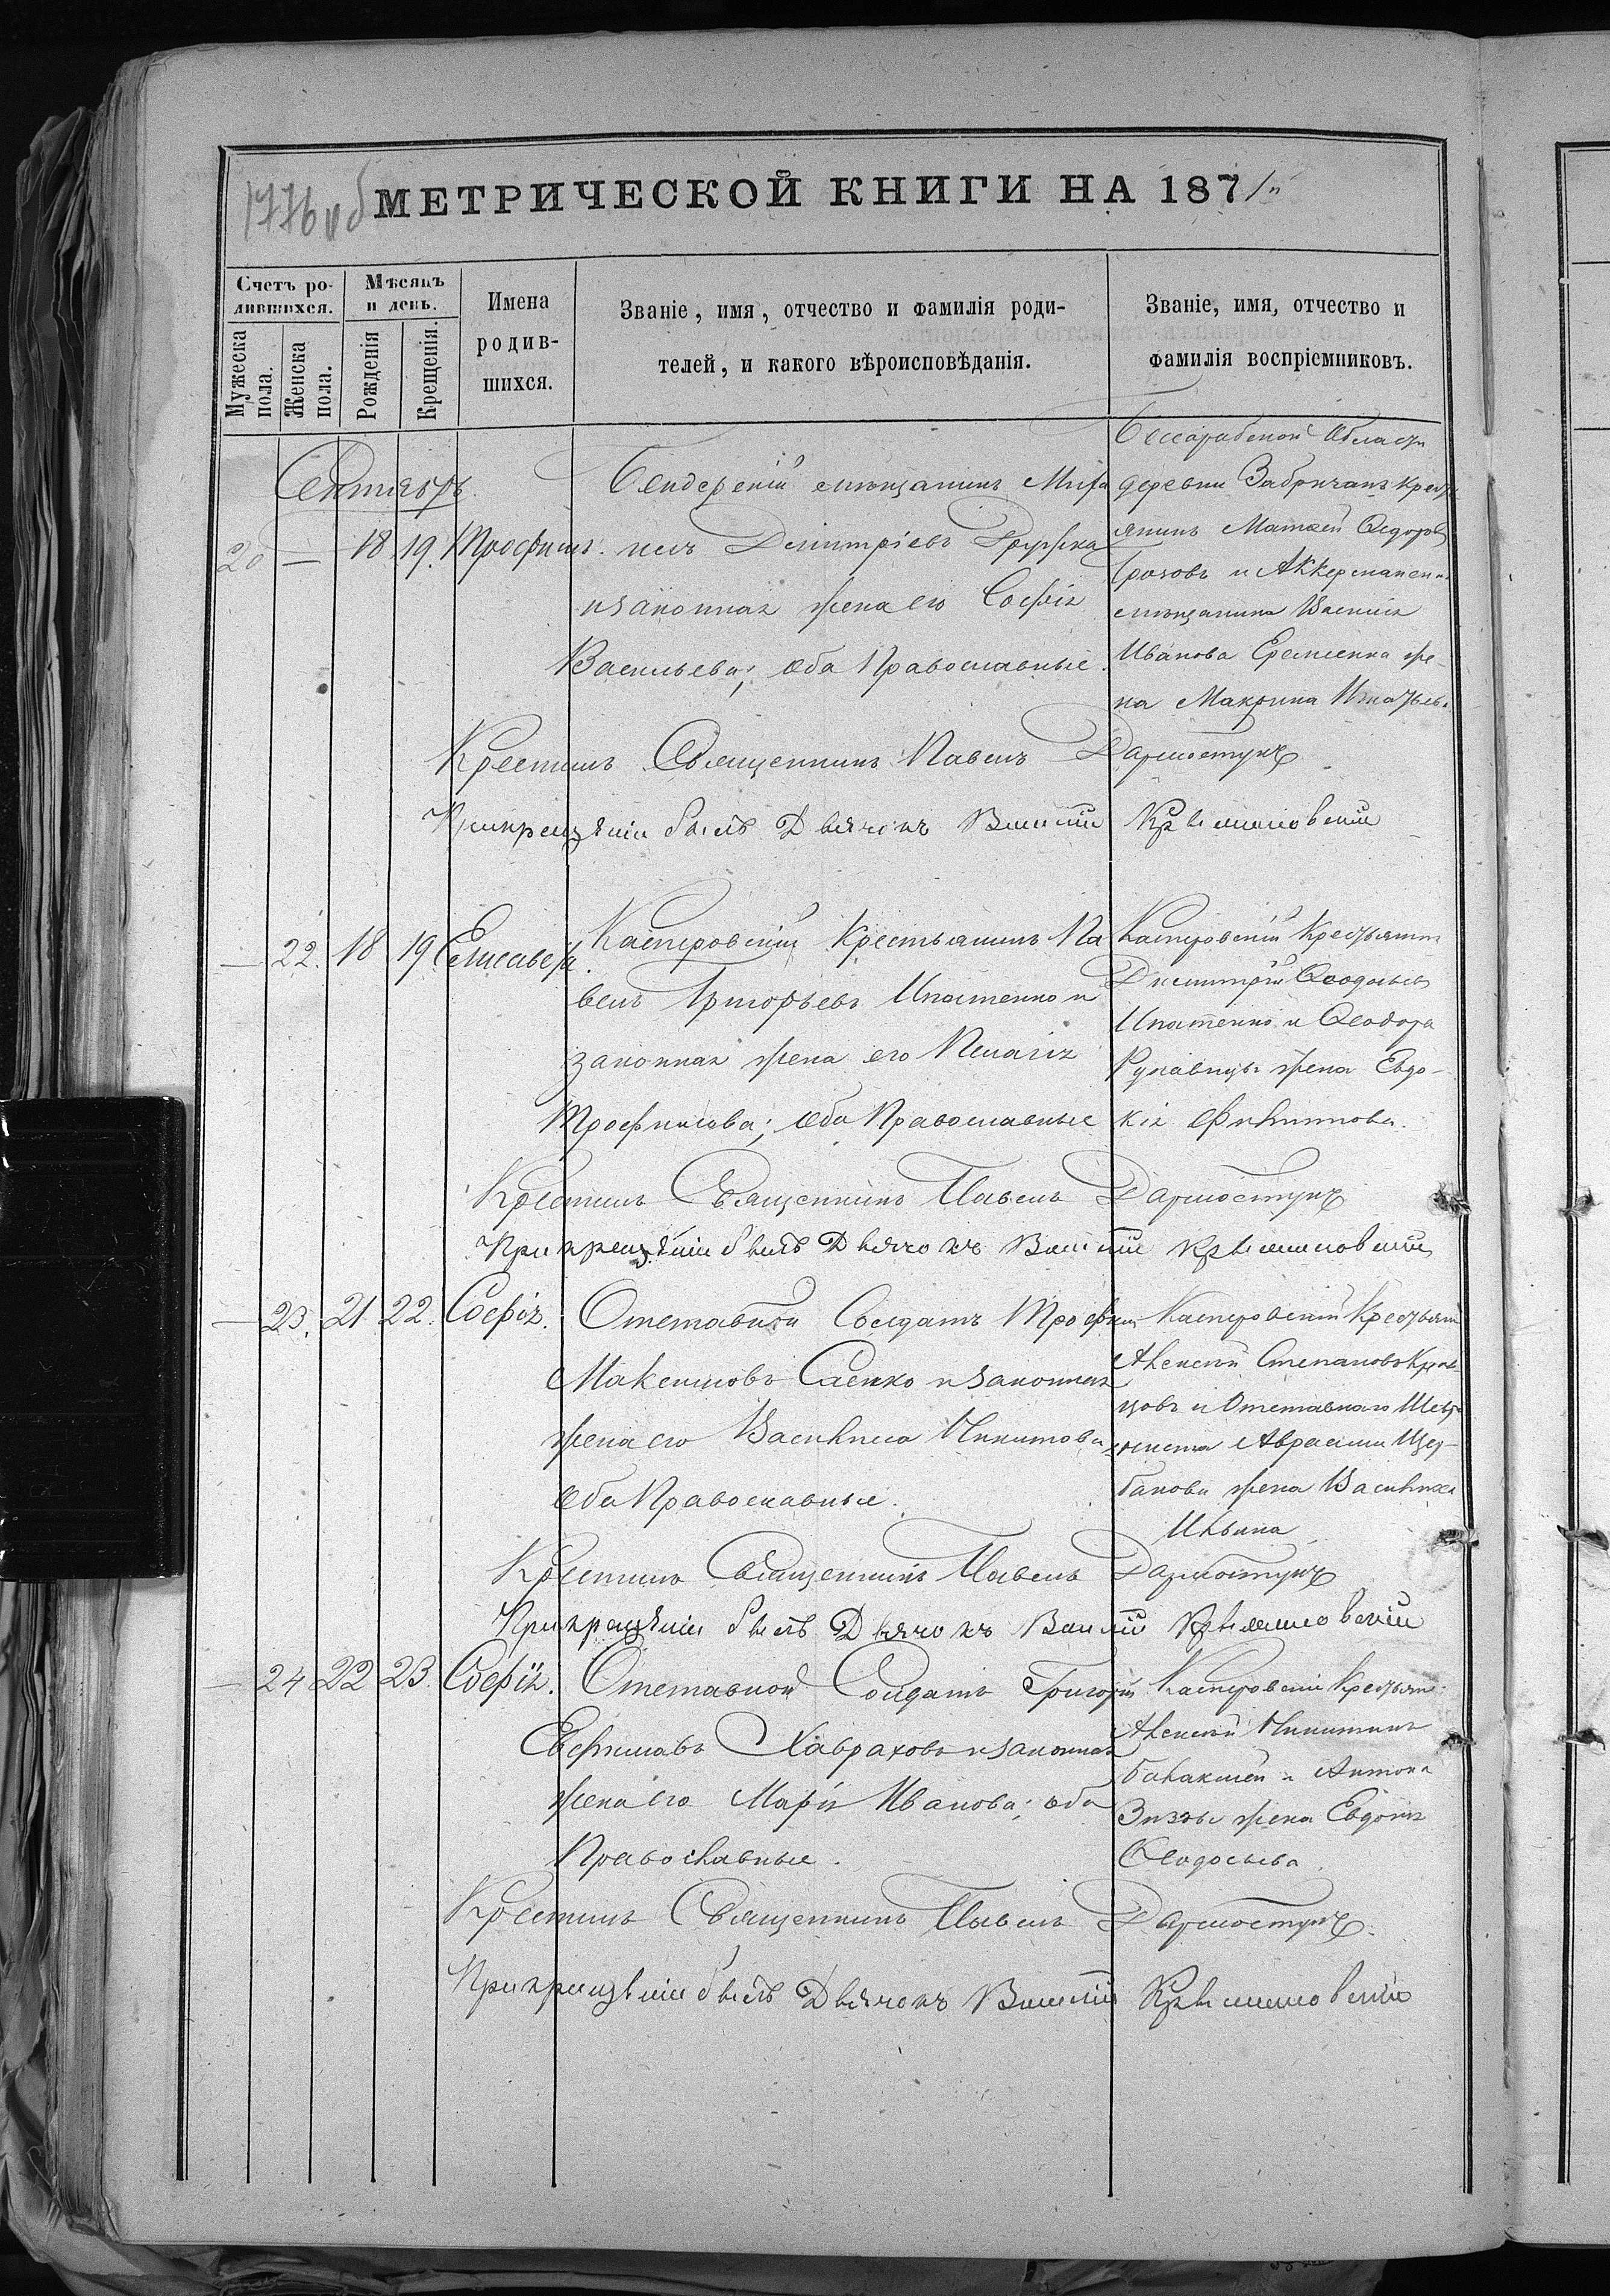 1776 об
МЕТРИЧЕСКОЙ КНИГИ НА 1871
Счетъ ро-
дившихся.
Мужеска
пола.
Женска
пола.
Мѣсяцъ
и день.
Рожденія
Крещенія.
Имена
родив-
шихся.
Званіе, имя, отчество и фамилія роди-
телей, и какого вѣроисповѣданія.
Званіе, имя, отчество и
фамилія воспріемниковъ.
Сентябрь
20 — 18 19. Трофимъ.
Бендерскій мѣщанинъ Миха
илъ Димитріевъ Дружка
и законная жена его Софія
Васильева; оба Православные.
Бессарабской Области
деревни Забричанъ крест
янинъ Матвей Ѳедоровъ
и Аккерманск
мѣщанина Василія
Иванова Еременка же-
на Макрина Игнатьева
Крестилъ Священникъ Павелъ Дармостукъ
При крещеніи былъ Дьячокъ Василій
— 22. 18 19 Елисавета.
Касперовскій Крестьянинъ Па
велъ Григорьевъ Ипатенко и
законная жена его Пелагія
Трофимова; оба Православные
Касперовскій Крестьянинъ
Димитрій Ѳеодосьевъ
Ипатенко и Ѳеодора
Рукавицы жена Евдо-
кія Филиппова.
Крестилъ Священникъ Павелъ Дармостукъ
При крещеніи былъ Дьячокъ Василій
— 23. 21 22. Софія.
Отставной Солдатъ Трофим
Максимовъ Саенко и законная
жена его Василиса Никитова
оба Православные.
Касперовскій Крестьянин
Алексѣй Степановъ Крав-
цовъ и Отставнаго
Авраама Щер-
бакова жена Василиса
Ильина
Крестилъ Священникъ Павелъ Дармостукъ
При крещеніи былъ Дьячокъ Василій
— 24 22 23. Софія.
Отставной Солдатъ Григорій
Хаврахов и законная
жена его Марія Иванова; оба
Православные.
Касперовскій Крестьян.
Алексѣй Никитинъ
и Антона
жена Евдокія
Ѳеодосьева.
Крестилъ Священникъ Павелъ Дармостукъ.
При крещеніи былъ Дьячокъ Василій